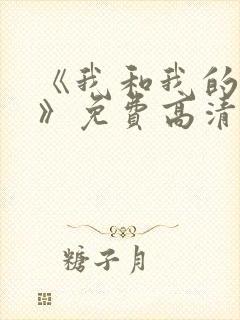 《我和我的
》免费高清
糖子月